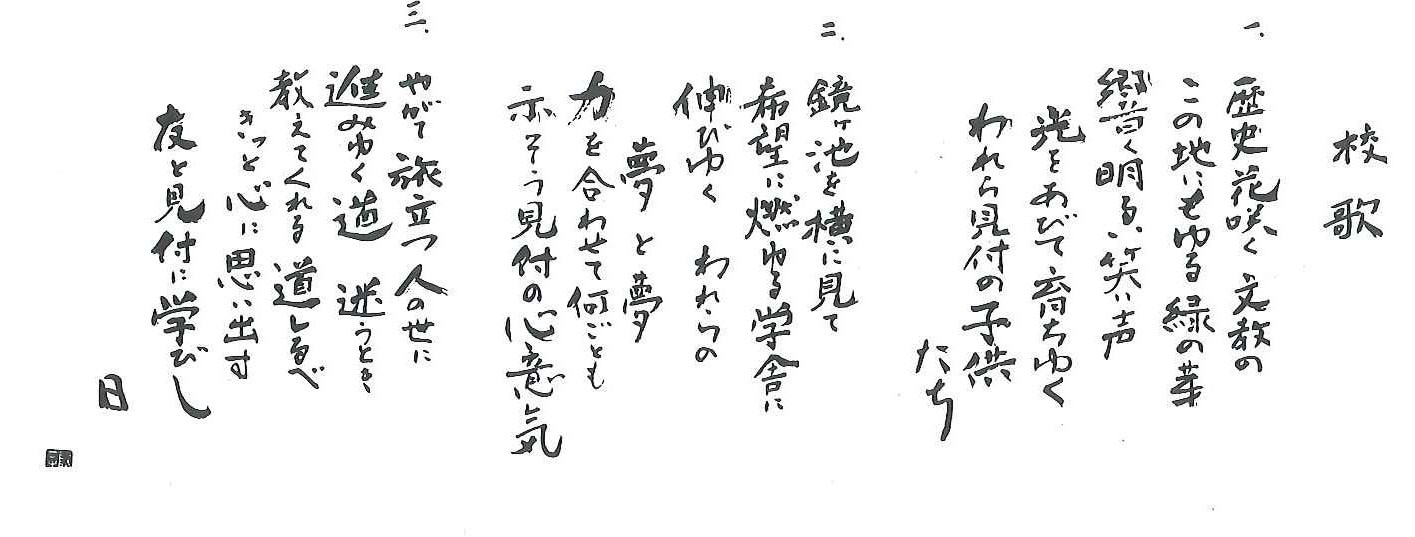 校歌
一、
歴史花咲く文教の
この地にもゆる緑の芽
響く明るい笑い声
光をあびて育ちゆく
われら見付の子供
たち
二、
鏡ヶ池を横に見て
希望に燃ゆる学舎に
伸びゆく われらの
夢と夢
力を合わせて何ごとも
示そう見付の心意気
三、
やがて旅立つ人の世に
進みゆく道 迷うとき
教えてくれる道しるべ
きっと心に思い出す
友と見付に学びし
日